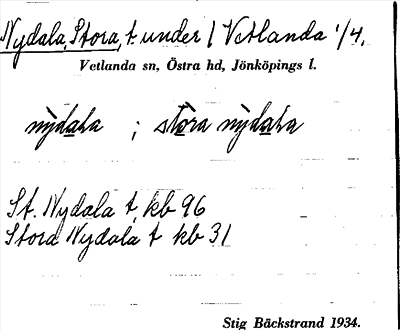 Nydala, Stora, t. under 1 Vetlanda 1/4.
Vetlanda sn, Östra hd, Jönköpings l.
nỳdala ; stora nỳdala
St. Nydala t kb 96
Stora Nydala t kb 31
Stig Bäckstrand 1934.